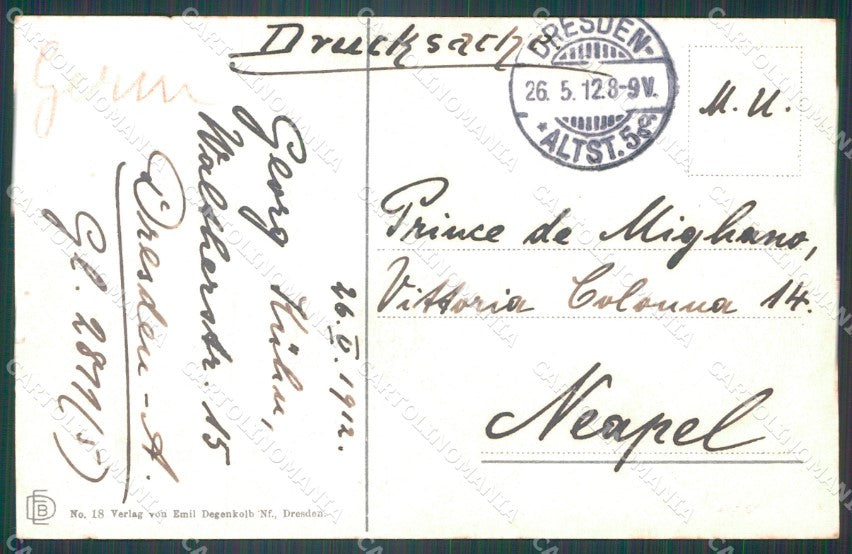 Drucksache
DRESDEN-
26. 5. 12. 8-9V.
*ALTST. 5
M. U.
Georg Kühn,
Waltherstr. 15
Dresden-A.
Gl. 2811(5)
26.V.1912.
Prince de Mighano,
Vittoria Colonna 14.
Neapel
No. 18 Verlag von Emil Degenkolb Nf., Dresden.
CARTOLINOMANIA